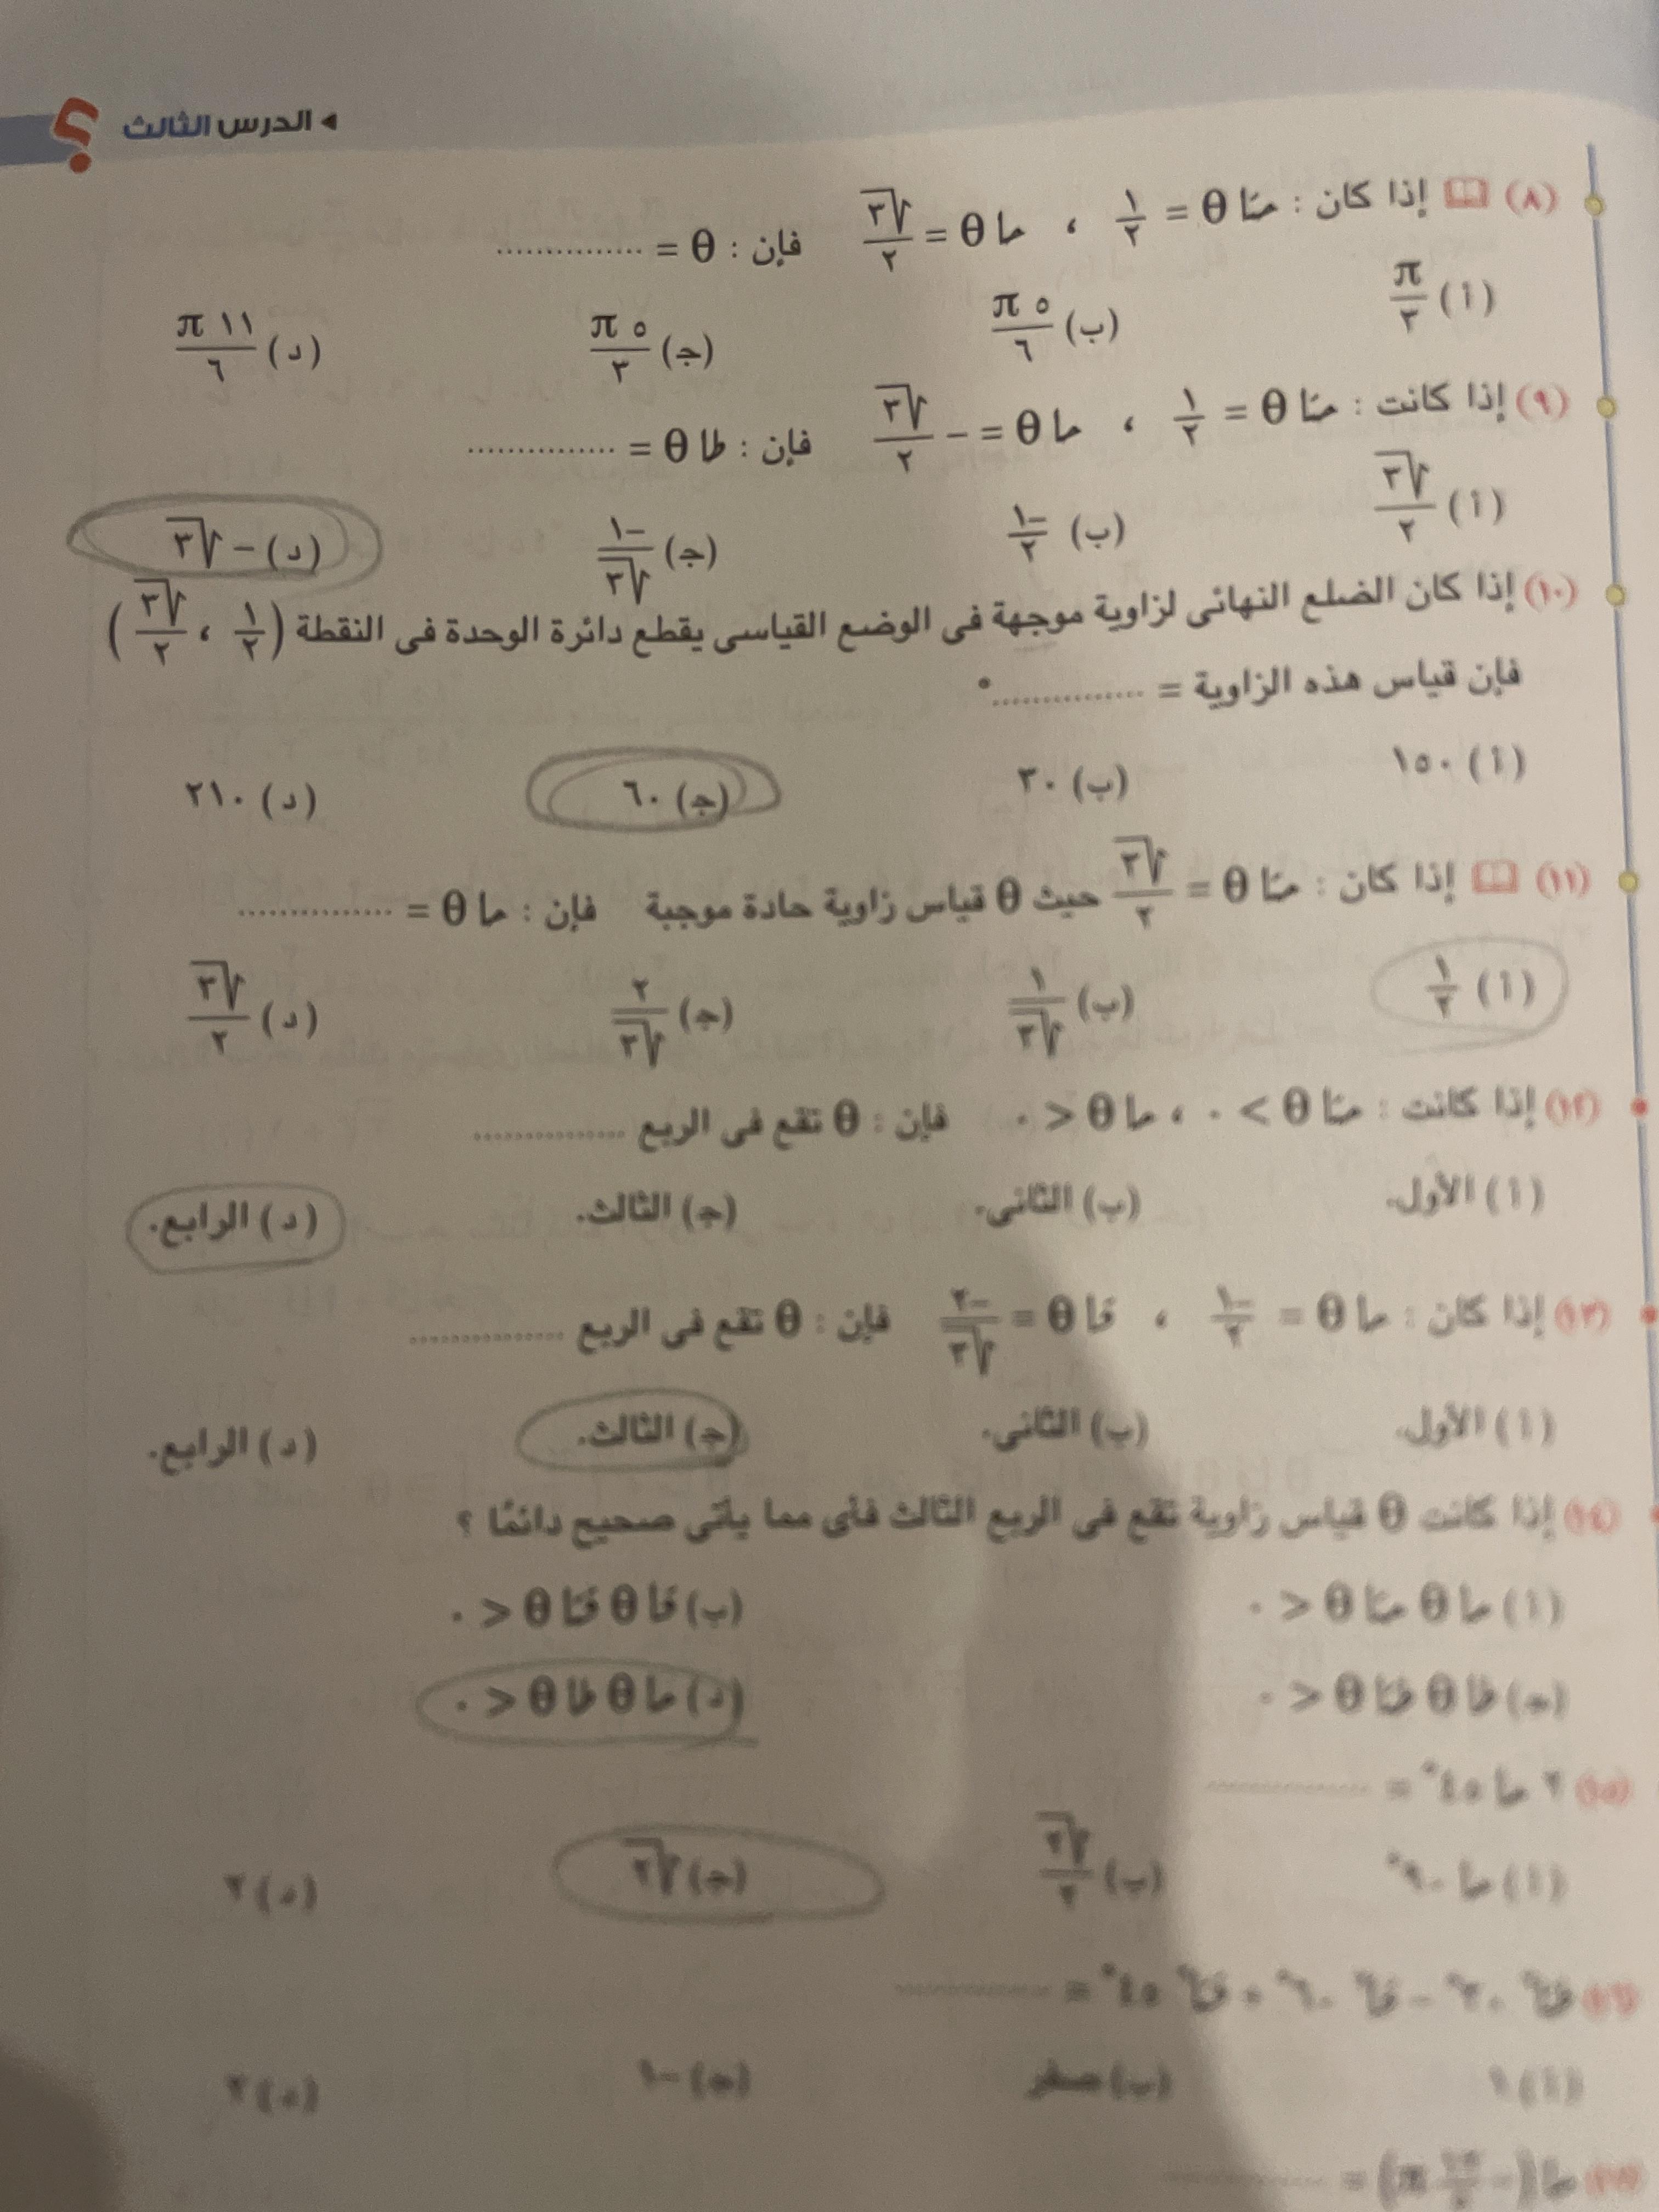 ◂ الدرس الثالث ؟
(٨) إذا كان : حتا θ = ١/٢ ، حا θ = √٣/٢ فإن : θ = ...............
(أ) π/٢ (ب) ٥ π/٦ (ج) ٥ π/٣ (د) ١١ π/٦
(٩) إذا كانت : حتا θ = ١/٢ ، حا θ = − √٣/٢ فإن : طا θ = ...............
(أ) √٣/٢ (ب) −١/٢ (ج) −١/√٣ (د) −√٣
(١٠) إذا كان الضلع النهائى لزاوية موجهة فى الوضع القياسى يقطع دائرة الوحدة فى النقطة (١/٢ ، √٣/٢)
فإن قياس هذه الزاوية = ...............°
(أ) ١٥٠ (ب) ٣٠ (ج) ٦٠ (د) ٢١٠
(١١) إذا كان : حتا θ = √٣/٢ حيث θ قياس زاوية حادة موجبة فإن : حا θ = ...............
(أ) ١/٢ (ب) ١/√٣ (ج) ٢/√٣ (د) √٣/٢
(١٢) إذا كانت : حتا θ > ٠ ، حا θ < ٠ فإن : θ تقع فى الربع ...............
(أ) الأول. (ب) الثانى. (ج) الثالث. (د) الرابع.
(١٣) إذا كان : حا θ = −١/٢ ، قا θ = −٢/√٣ فإن : θ تقع فى الربع ...............
(أ) الأول. (ب) الثانى. (ج) الثالث. (د) الرابع.
(١٤) إذا كانت θ قياس زاوية تقع فى الربع الثالث فأى مما يأتى صحيح دائمًا ؟
(أ) حا θ حتا θ < ٠ (ب) قا θ قتا θ < ٠
(ج) طا θ طتا θ < ٠ (د) حا θ طا θ < ٠
(١٥) ٢ حا ٤٥° = ...............
(أ) حا ٩٠° (ب) √٢/٢ (ج) √٢ (د) ٢
(١٦) ٣٠° − ٦٠° + ٤٥° = ...............
(أ) ١ (ب) صفر (ج) −١ (د) ٢